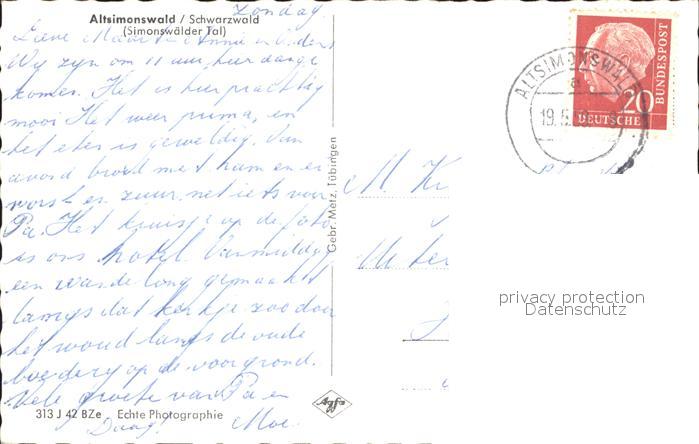 Altsimonswald / Schwarzwald
(Simonswälder Tal)
Zondag
Lieve
Wij zyn om 11 uur hier aange
komen. Het is hier prachtig
mooi Het weer prima, en
het eten is geweldig. Van
avond brood met ham en
worst en zuur, net iets voor
Pa. Het kruisje op de foto
is ons hotel. Vanmiddag
een wandeling gemaakt
langs dat kerkje zoo door
het woud langs de oude
boerdery op de voorgrond.
Vele groete van Pa en
Daag! Moe.
313 J 42 BZe Echte Photographie
Gebr. Metz, Tübingen
Agfa
ALTSIMONSWALD
a
19.5.
20
DEUTSCHE
BUNDESPOST
M. K
privacy protection
Datenschutz